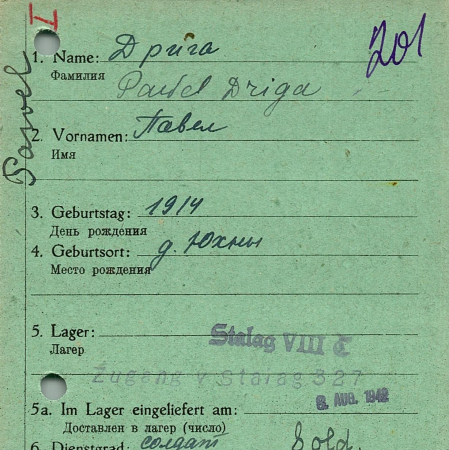 I
201
Pavel
1. Name: Дрига
Фамилия
Pavel Driga
2. Vornamen: Павел
Имя
3. Geburtstag: 1914
День рождения
4. Geburtsort: д. Юхны
Место рождения
5. Lager: Stalag VIII
Лагер
Zugang v Stalag 327
8. AUG. 1942
5a. Im Lager eingeliefert am:
Доставлен в лагер (число)
6. Dienstgrad: солдат Sold.